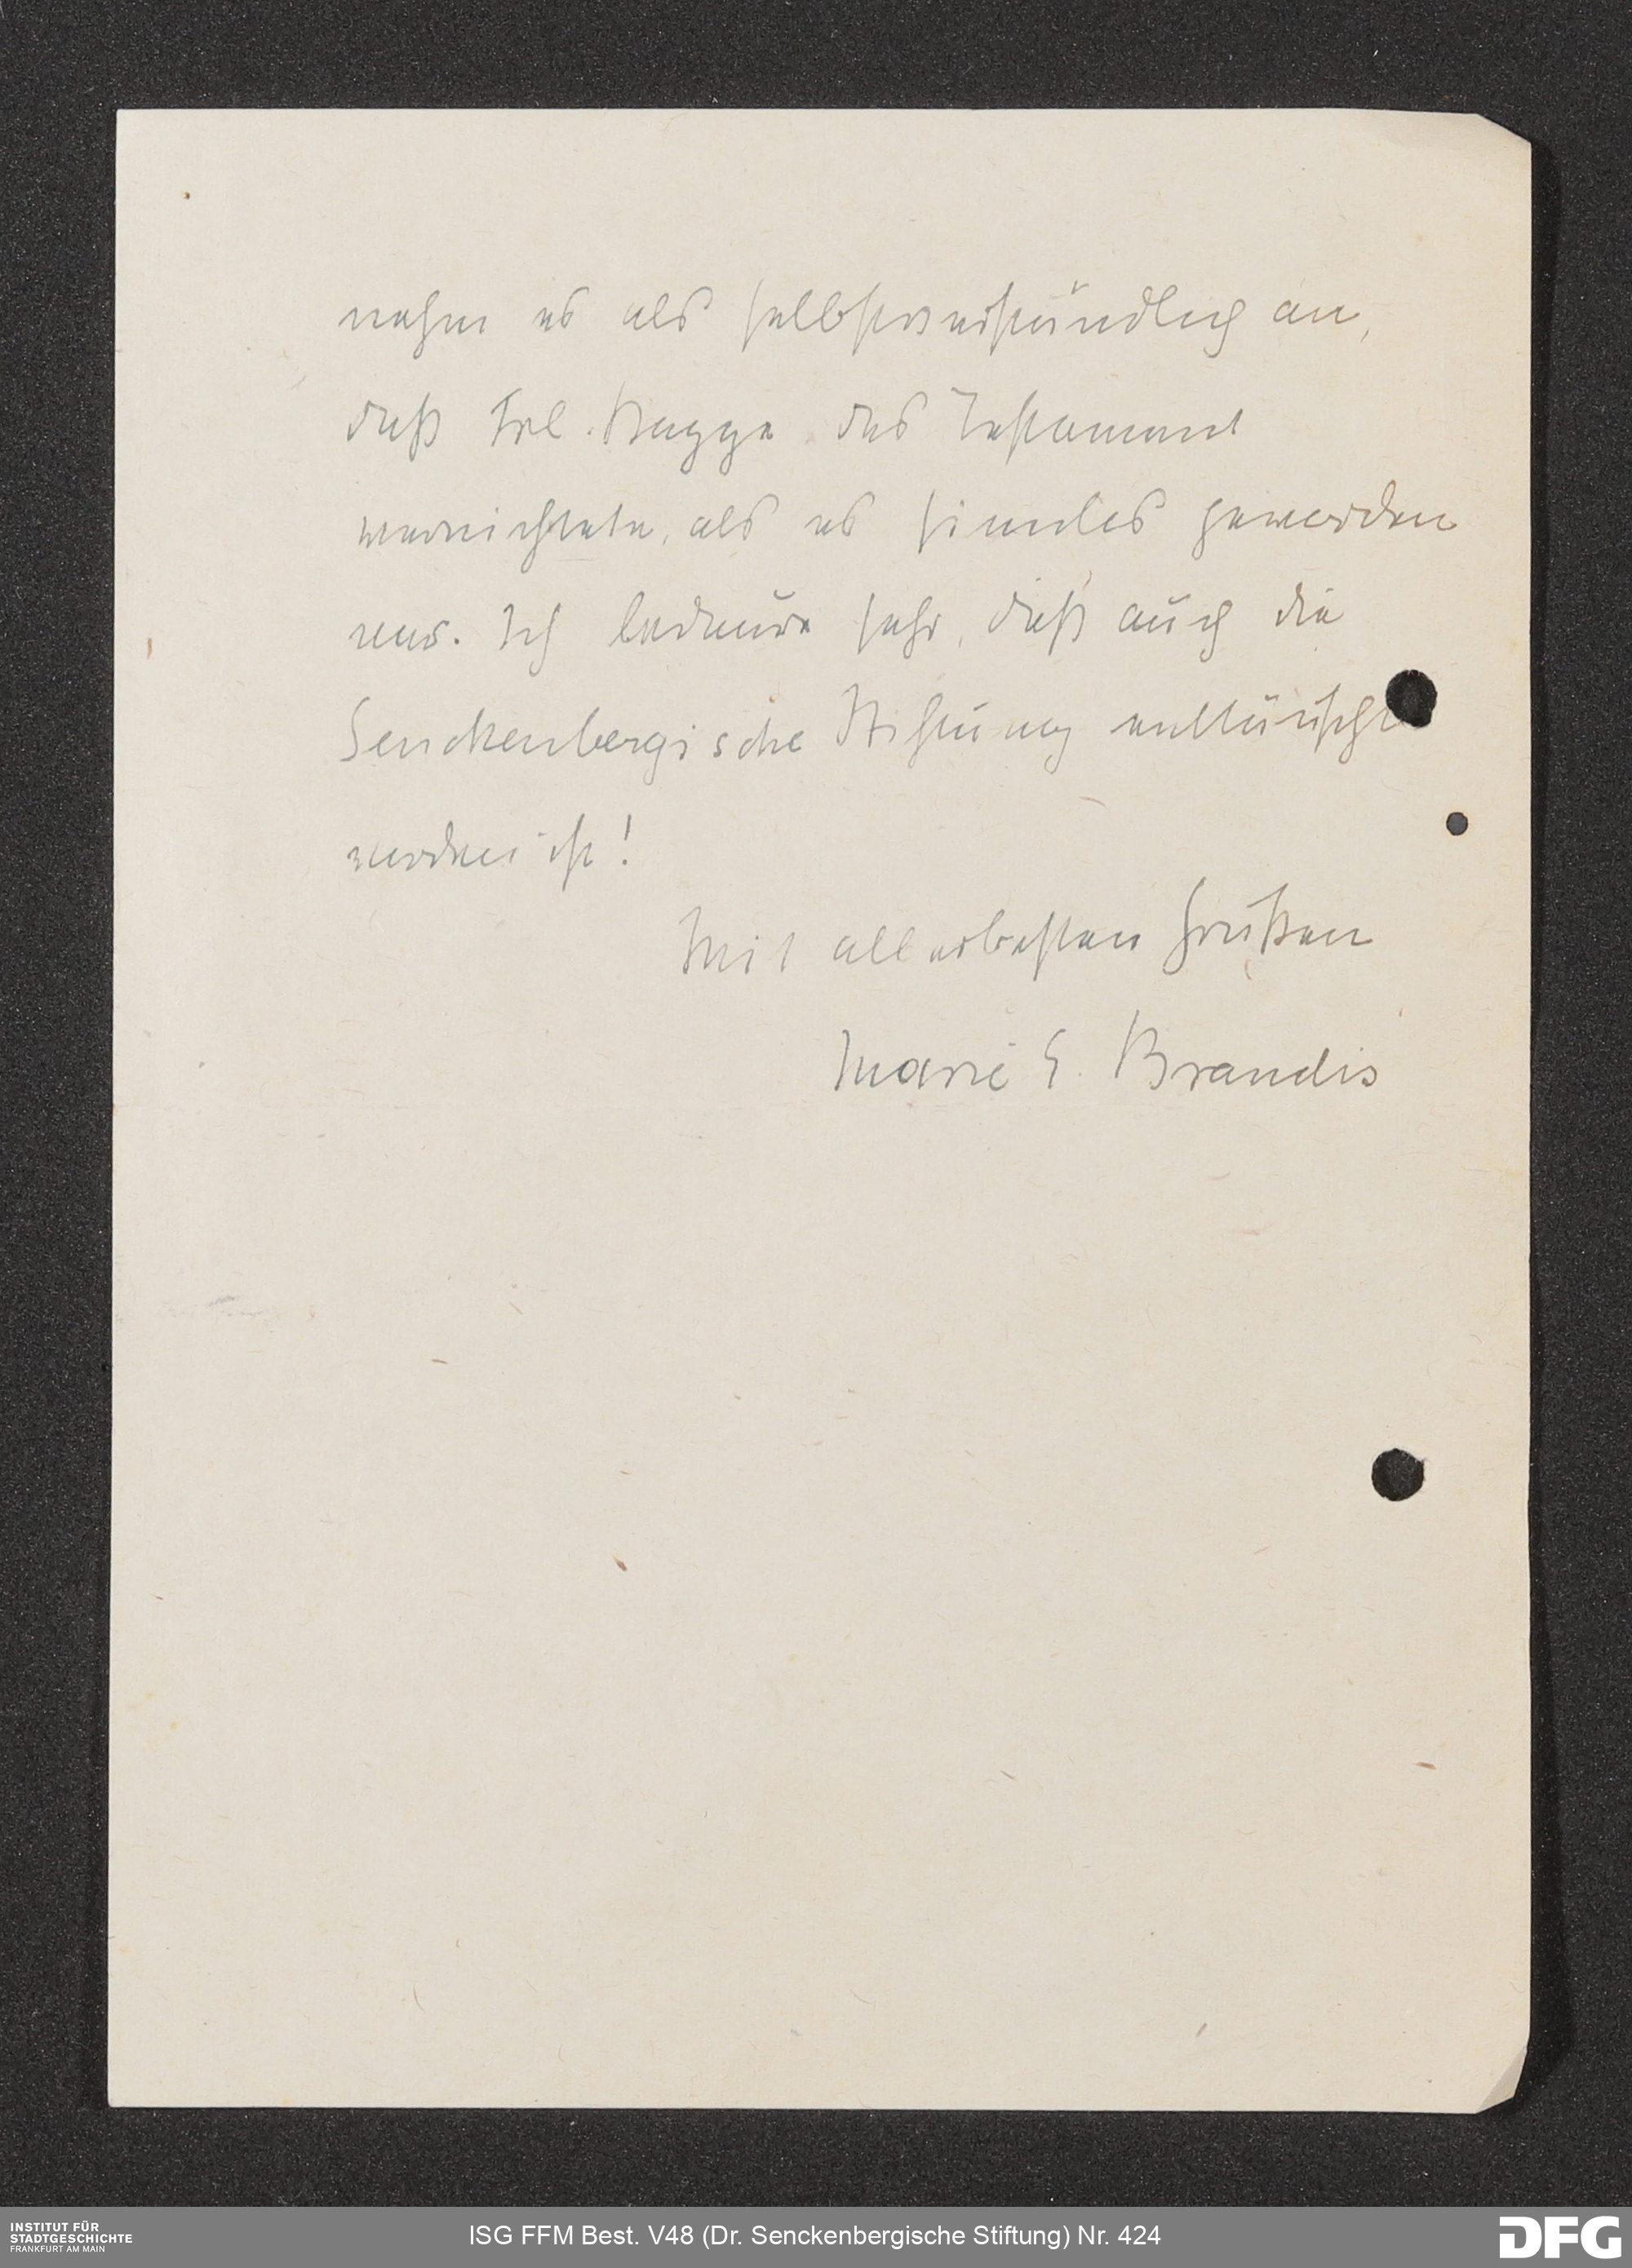 nahm es als selbstverständlich an,
daß Frl. das Testament
vernichtete, als es sinnlos geworden
war. Ich bedaure sehr, daß auch die
Senckenbergische Stiftung enttäuscht
worden ist!
Mit allerbesten Grüßen
Marie E. Brandis
INSTITUT FÜR
STADTGESCHICHTE
FRANKFURT AM MAIN
ISG FFM Best. V48 (Dr. Senckenbergische Stiftung) Nr. 424
DFG